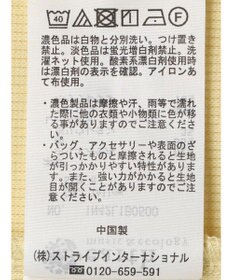 40
F
濃色品は白物と分別洗い。つけ置き
禁止。淡色品は蛍光増白剤禁止。洗
濯ネット使用。酸素系漂白剤使用時
は漂白剤の表示を確認。アイロンあ
て布使用。
・濃色製品は摩擦や汗、雨等で濡れ
た際に他の衣類や小物類に色が移
る事がありますのでご注意くださ
い。
・バッグ、アクセサリーや表面のざ
らついたものと摩擦されると生地
が引っかかりやすい特性がありま
す。また、強い力がかかると生地
が破れることがありますのでご注
意ください。
中国製
(株)ストライプインターナショナル
0120-659-591